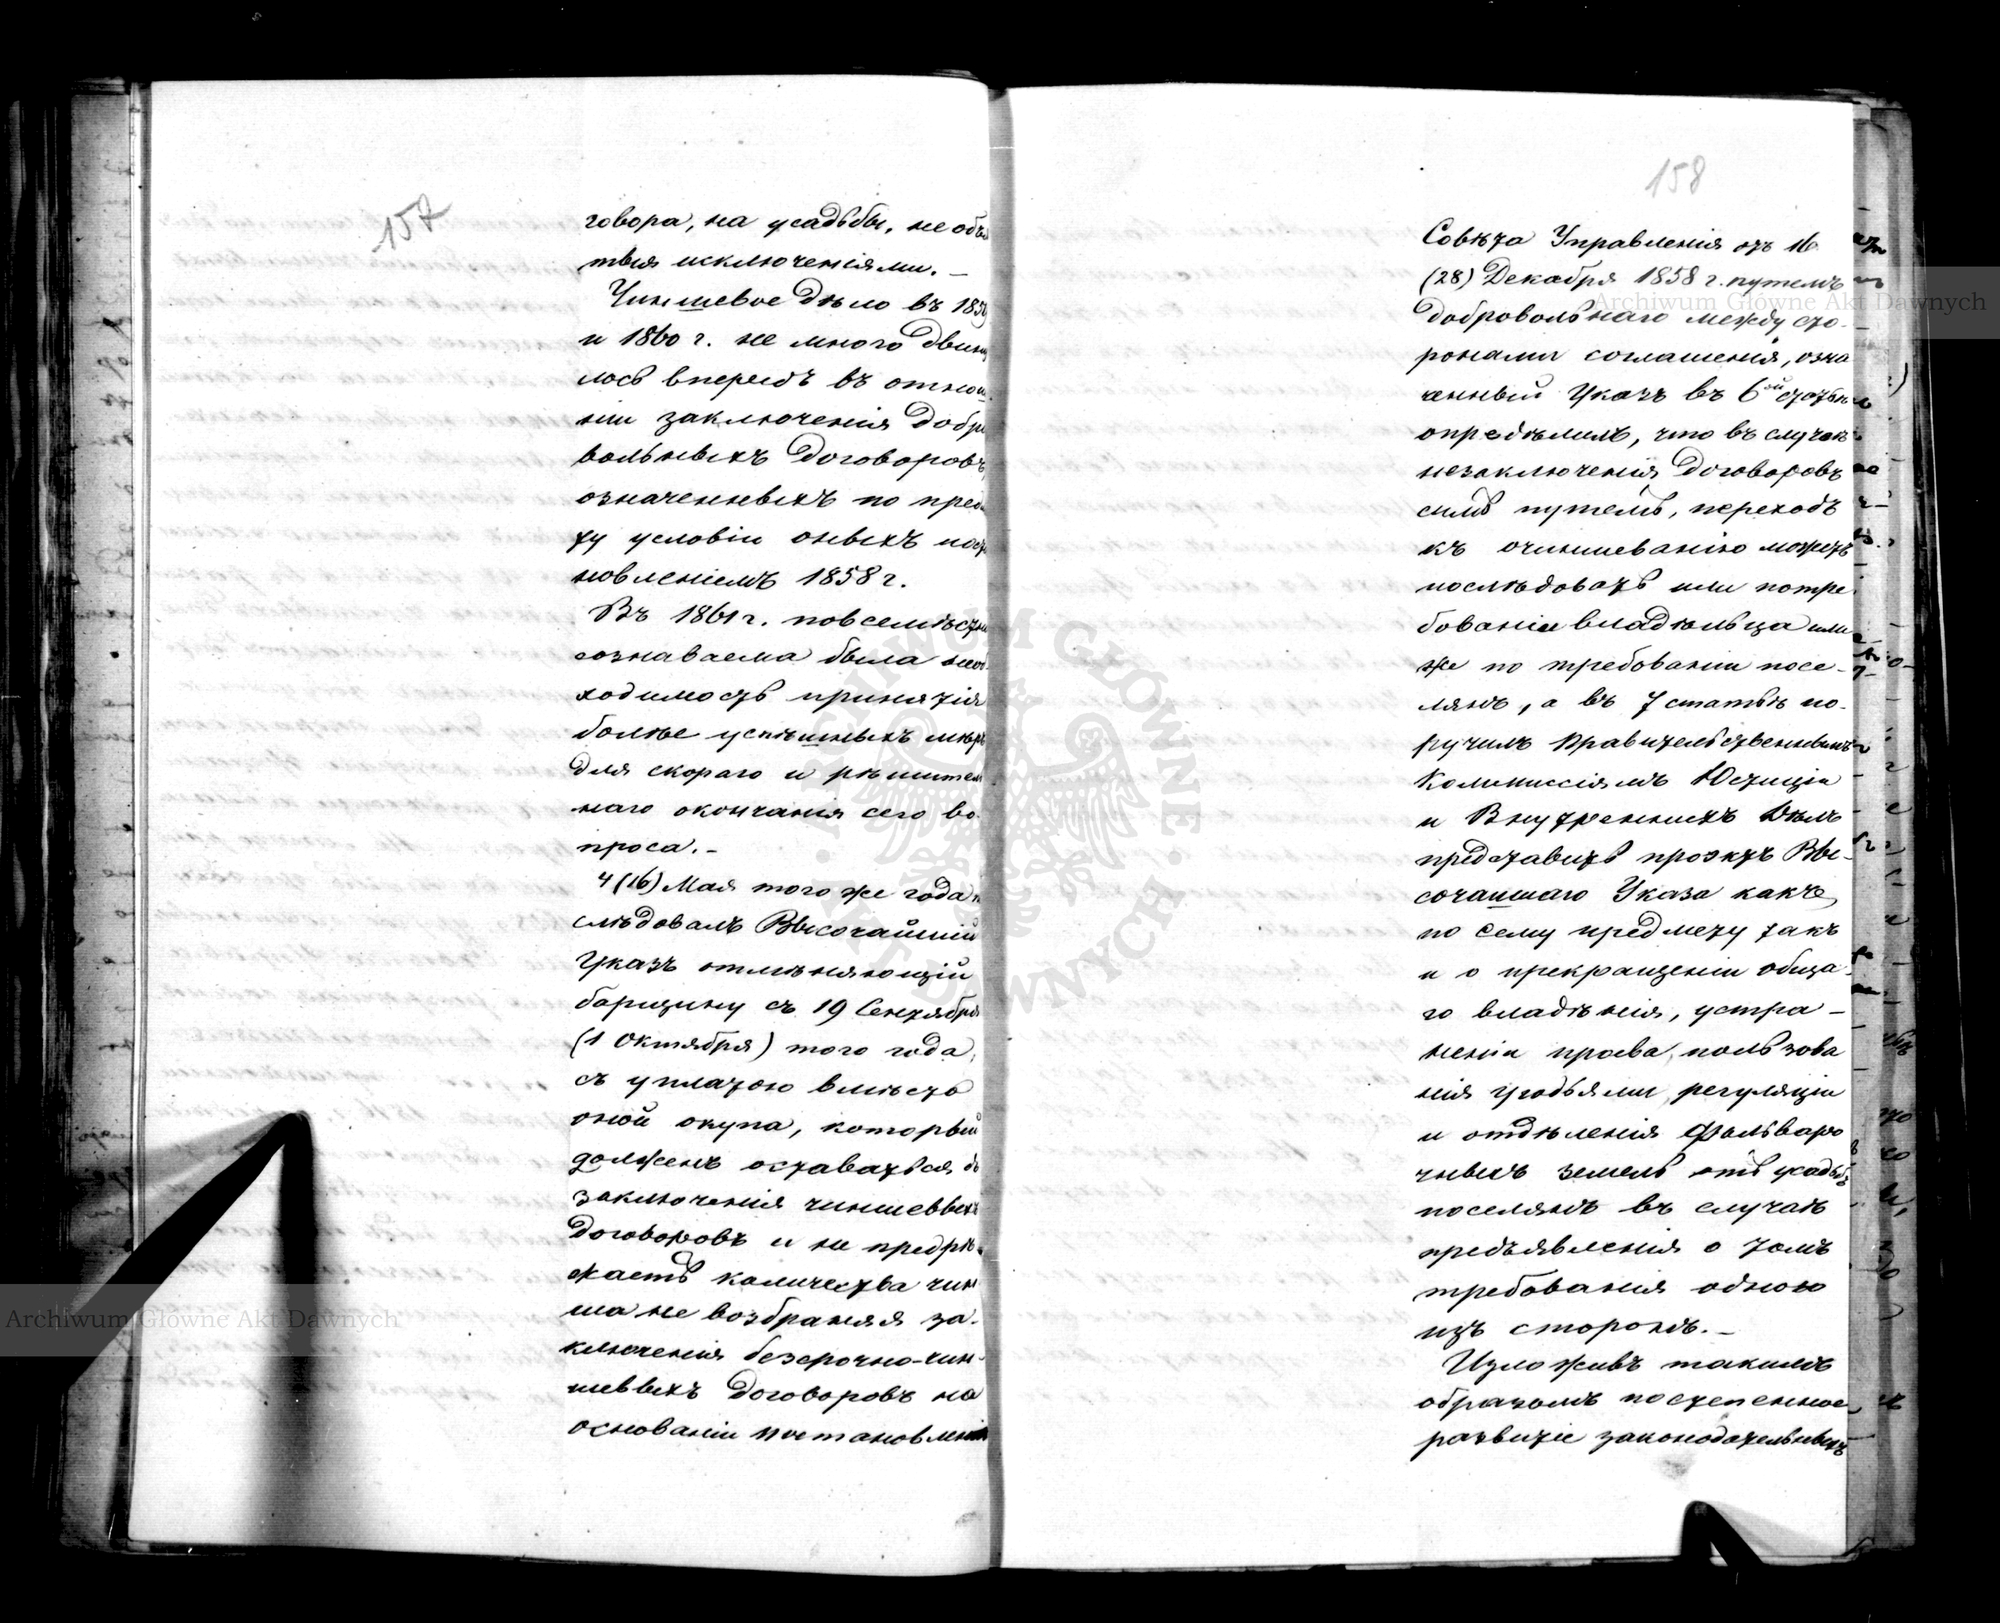 157
говора, на усадьбы, не объя
тыя исключеніями. —
Чиншевое дѣло въ 1859
и 1860 г. не много двину
лось впередъ въ отноше
ніи заключенія добро
вольныхъ договоровъ,
означенныхъ по предме
ту условіи оныхъ поста
новленіемъ 1858 г.
Въ 1861 г. повсемѣстно
сознаваема была необ
ходимость принятія
болѣе успѣшныхъ мѣръ
для скораго и рѣшитель
наго окончанія сего во
проса. —
4 (16) Мая того же года по
слѣдовалъ Высочайшій
Указъ отмѣняющій
барщину съ 19 Сентября
(1 Октября) того года,
съ уплатою вмѣсто
оной окупа, который
долженъ оставаться до
заключенія чиншевыхъ
договоровъ и не предрѣ
жаетъ количества чин
ша не возбраняя за-
ключенія безсрочно-чин-
шевыхъ договоровъ на
основаніи постановленія
158
Совѣта Управленія отъ 16
(28) Декабря 1858 г. путемъ
добровольнаго между сто-
ронами соглашенія, озна
ченный Указъ въ 6ой статьѣ
опредѣлилъ, что въ случаѣ
незаключенія договоровъ
симъ путемъ, переходъ
къ очиншеванію можетъ
послѣдовать или потре
бованіи владѣльца или
же по требованіи посе-
лянъ, а въ 7 статьѣ по-
ручилъ Правительственнымъ
Коммиссіямъ Юстиціи
и Внутреннихъ Дѣлъ
представить проэктъ Вы-
сочашаго Указа какъ
по сему предмету такъ
и о прекращеніи обща-
го владѣнія, устра-
неніи права пользова
нія угодьями, регуляціи
и отдѣленія фольваро
чныхъ земель отъ усадьбъ
поселянъ въ случаѣ
предъявленія о томъ
требованія одною
изъ сторонъ. —
Изложивъ такимъ
образомъ постепенное
развитіе законодательныхъ
Archiwum Główne Akt Dawnych
Archiwum Główne Akt Dawnych
ARCHIWUM GŁÓWNE AKT DAWNYCH